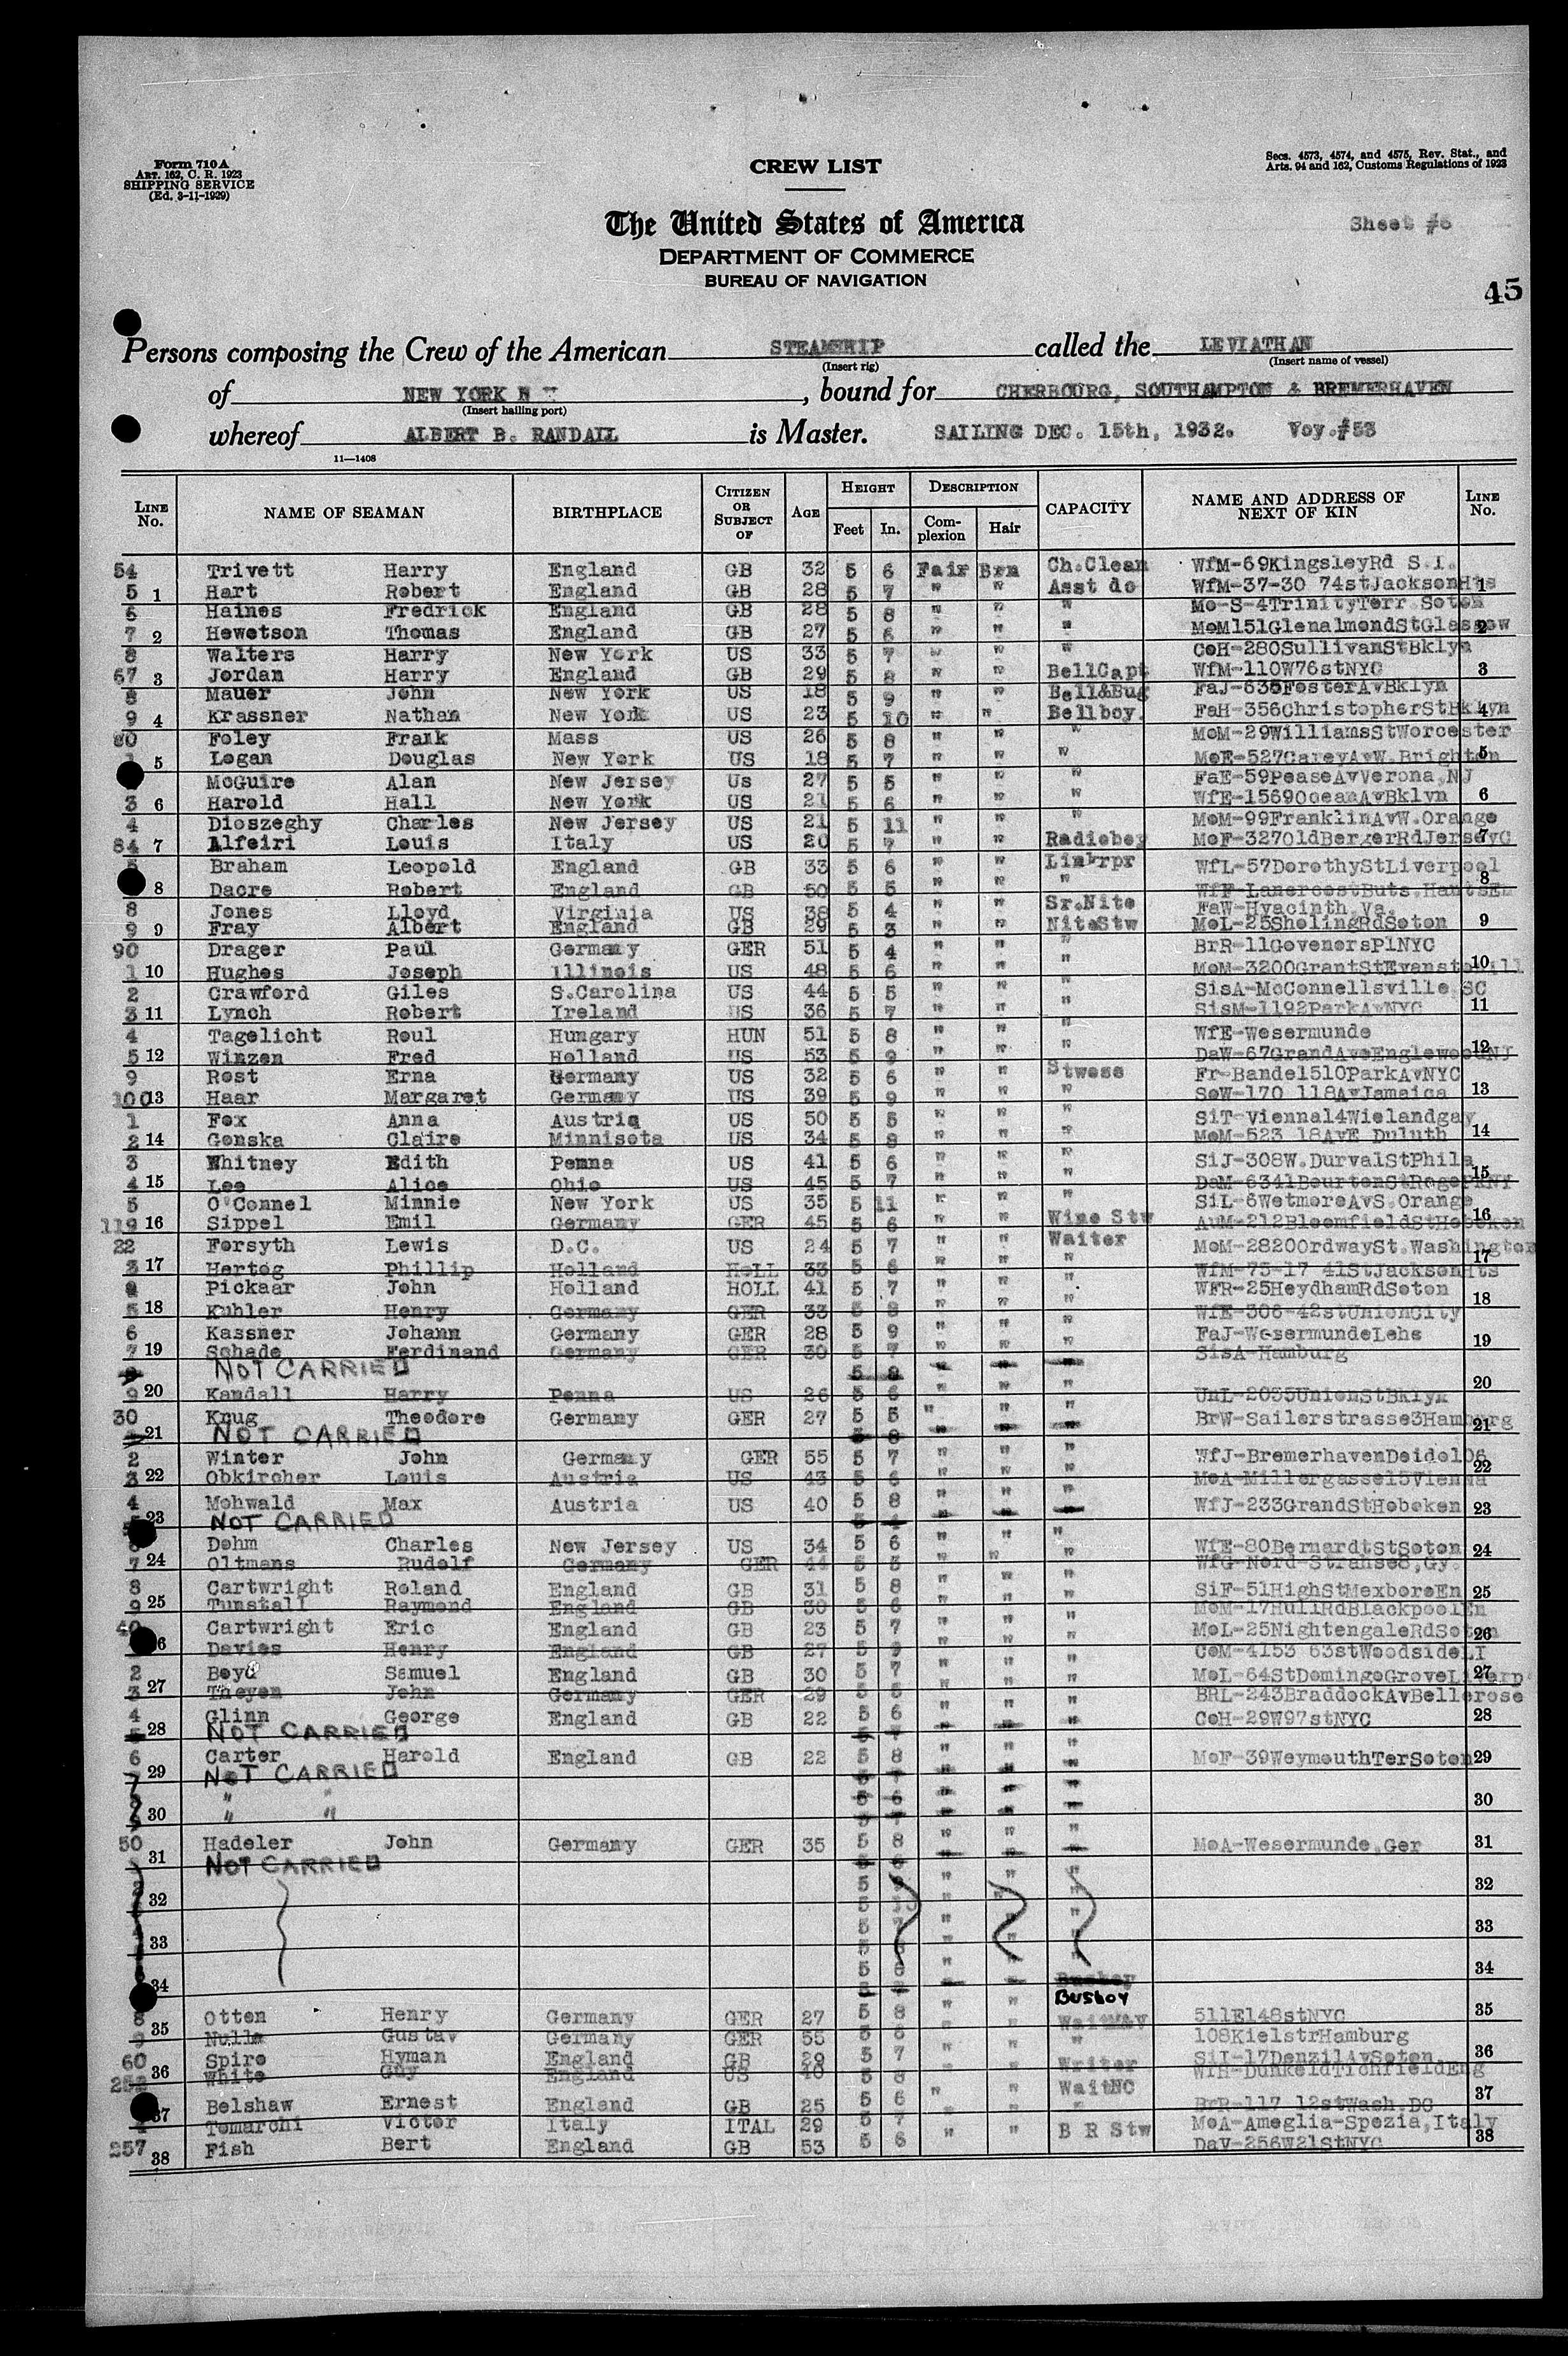 Form 710 A
ART. 162, C. R. 1923
SHIPPING SERVICE
(Ed. 3-11-1929)
CREW LIST
Secs. 4573, 4574, and 4575, Rev. Stat., and
Arts. 94 and 162, Customs Regulations of 1923
The United States of America
Sheet
DEPARTMENT OF COMMERCE
BUREAU OF NAVIGATION
45
Persons composing the Crew of the American STEAMSHIP called the LEVIATHAN
(Insert rig) (Insert name of vessel)
of NEW YORK N Y, bound for CHERBOURG, SOUTHAMPTON & BREMERHAVEN
(Insert hailing port)
whereof ALBERT B. RANDALL is Master. SAILING DEC. 15th, 1932. Voy.#53
11—1408
LINE No. NAME OF SEAMAN BIRTHPLACE CITIZEN OR SUBJECT OF AGE HEIGHT Feet In. DESCRIPTION Complexion Hair CAPACITY NAME AND ADDRESS OF NEXT OF KIN LINE No.
54 Trivett Harry England GB 32 5 6 Fair Brn Ch.Clean WfM-69KingsleyRd S.I.
5 1 Hart Robert England GB 28 5 7 " " Asst do WfM-37-30 74stJacksonHts 1
6 Haines Fredrick England GB 28 5 8 " " " Mo-S-4TrinityTerr.Soton
7 2 Hewetson Thomas England GB 27 5 6 " " " MoM151GlenalmondStGlasgow 2
8 Walters Harry New York US 33 5 7 " " CoH-280SullivanStBklyn
67 3 Jordan Harry England GB 29 5 8 " " BellCapt WfM-110W76stNYC 3
8 Mauer John New York US 18 5 9 " " Bell&Bug FaJ-635FosterAvBklyn
9 4 Krassner Nathan New York US 23 5 10 " " Bellboy. FaH-356ChristopherStBklyn 4
80 Foley Frank Mass US 26 5 8 " " " MoM-29WilliamsStWorcester
5 Logan Douglas New York US 18 5 7 " " " MoE-527CareyAvW.Brighton 5
McGuire Alan New Jersey Us 27 5 5 " " " FaE-59PeaseAvVerona,NJ
3 6 Harold Hall New York US 21 5 6 " " " WfE-1569OceanAvBklyn 6
4 Dioszeghy Charles New Jersey US 21 5 11 " " " MoM-99FranklinAvW.Orange
84 7 Alfeiri Louis Italy US 20 5 7 " " Radioboy MoF-327OldBergerRdJerseyC 7
Braham Leopold England GB 33 5 6 " " WfL-57DorothyStLiverpool
8 Dacre Robert England GB 50 5 5 " " " 8
8 Jones Lloyd Virginia US 38 5 4 " " Sr.Nite FaW-Hyacinth,Va.
9 9 Fray Albert England GB 29 5 3 " " NiteStw MoL-25SholingRdSoton 9
90 Drager Paul Germany GER 51 5 4 " " " BrR-11GovenorsPlNYC
1 10 Hughes Joseph Illinois US 48 5 6 " " " MoM-3200GrantStEvanstonIll 10
2 Crawford Giles S.Carolina US 44 5 5 " " " SisA-McConnellsville,SC
3 11 Lynch Robert Ireland US 36 5 7 " " " SisM-1192ParkAvNYC 11
4 Tagelicht Roul Hungary HUN 51 5 8 " " " WfE-Wesermunde
5 12 Winzen Fred Holland US 53 5 9 " " " DaW-67GrandAveEnglewoodNJ 12
9 Rost Erna Germany US 32 5 6 " " Stwess Fr-Bande1510ParkAvNYC
100 13 Haar Margaret Germany US 39 5 9 " " " SoW-170 118AvJamaica 13
1 Fox Anna Austria US 50 5 5 " " " SiT-Vienna14Wielandgay
2 14 Gonska Claire Minnisota US 34 5 8 " " " MoM-523 18AvE Duluth 14
3 Whitney Edith Penna US 41 5 6 " " " SiJ-308W.DurvalStPhila
4 15 Lee Alice Ohio US 45 5 7 " " " 15
5 O'Connel Minnie New York US 35 5 11 " " " SiL-6WetmoreAvS.Orange
119 16 Sippel Emil Germany GER 45 5 6 " " Wine Stw AuM-212BloomfieldStHoboken 16
22 Forsyth Lewis D.C. US 24 5 7 " " Waiter MoM-2820OrdwaySt.Washington
3 17 Hertog Phillip Holland HoLL 33 5 6 " " " WfM-73-17 41StJacksonHts 17
Pickaar John Holland HOLL 41 5 7 " " " WFR-25HeydhamRdSoton
5 18 Kuhler Henry Germany GER 33 5 8 " " " WfE-306-42stUnionCity 18
6 Kassner Johann Germany GER 28 5 9 " " " FaJ-WesermundeLehe
7 19 Schade Ferdinand Germany GER 30 5 7 " " " SisA-Hamburg 19
NOT CARRIED
9 20 Kandall Harry Penna US 26 5 6 " " " UnL-2035UnionStBklyn 20
30 Krug Theodore Germany GER 27 5 5 " " " BrW-Sailerstrasse3Hamburg
21 NOT CARRIED 21
2 Winter John Germany GER 55 5 7 " " " WfJ-BremerhavenDeido106
3 22 Obkircher Louis Austria US 43 5 6 " " " MoA-Millergasse15Vienna 22
4 Mohwald Max Austria US 40 5 8 " " " WfJ-233GrandStHoboken
23 NOT CARRIED 23
Dohm Charles New Jersey US 34 5 6 " " " WfE-80BernardtStSoton
7 24 Oltmans Rudolf Germany GER 44 5 5 " " " 24
8 Cartwright Roland England GB 31 5 8 " " " SiF-51HighStMexboroEn
9 25 Tunstall Raymond England GB 30 5 6 " " " MoM-17HullRdBlackpoolEn 25
40 Cartwright Eric England GB 23 5 7 " " " MoL-25NightengaleRdSoton
6 Davies Henry England GB 27 5 9 " " " CoM-4153 63stWoodsideLI 26
2 Boyd Samuel England GB 30 5 7 " " " MoL-64StDomingoGroveLiverp
3 27 Theyen John Germany GER 29 5 5 " " " BRL-243BraddockAvBellerose 27
4 Glinn George England GB 22 5 6 " " " CoH-29W97stNYC
28 NOT CARRIED 28
6 Carter Harold England GB 22 5 8 " " " MoF-39WeymouthTerSoton
29 NOT CARRIED 29
" "
30 " " 30
50 Hadeler John Germany GER 35 5 8 " " " MoA-Wesermunde,Ger
31 NOT CARRIED 31
32 32
33 33
34 34
Busboy
8 Otten Henry Germany GER 27 5 8 " " 511E148stNYC
35 Nulle Gustav Germany GER 55 5 6 " 108KielstrHamburg 35
60 Spiro Hyman England GB 29 5 7 SiI-17DenzilAvSoton
36 White Guy England US 40 5 8 " " Writer 36
Belshaw Ernest England GB 25 5 6 " " WaitNC BrR-117 12stWash.DC
37 Tomarchi Victor Italy ITAL 29 5 7 " MoA-Ameglia-Spezia,Italy 37
257 38 Fish Bert England GB 53 5 6 " " B R Stw DaV-256W21StNYC 38